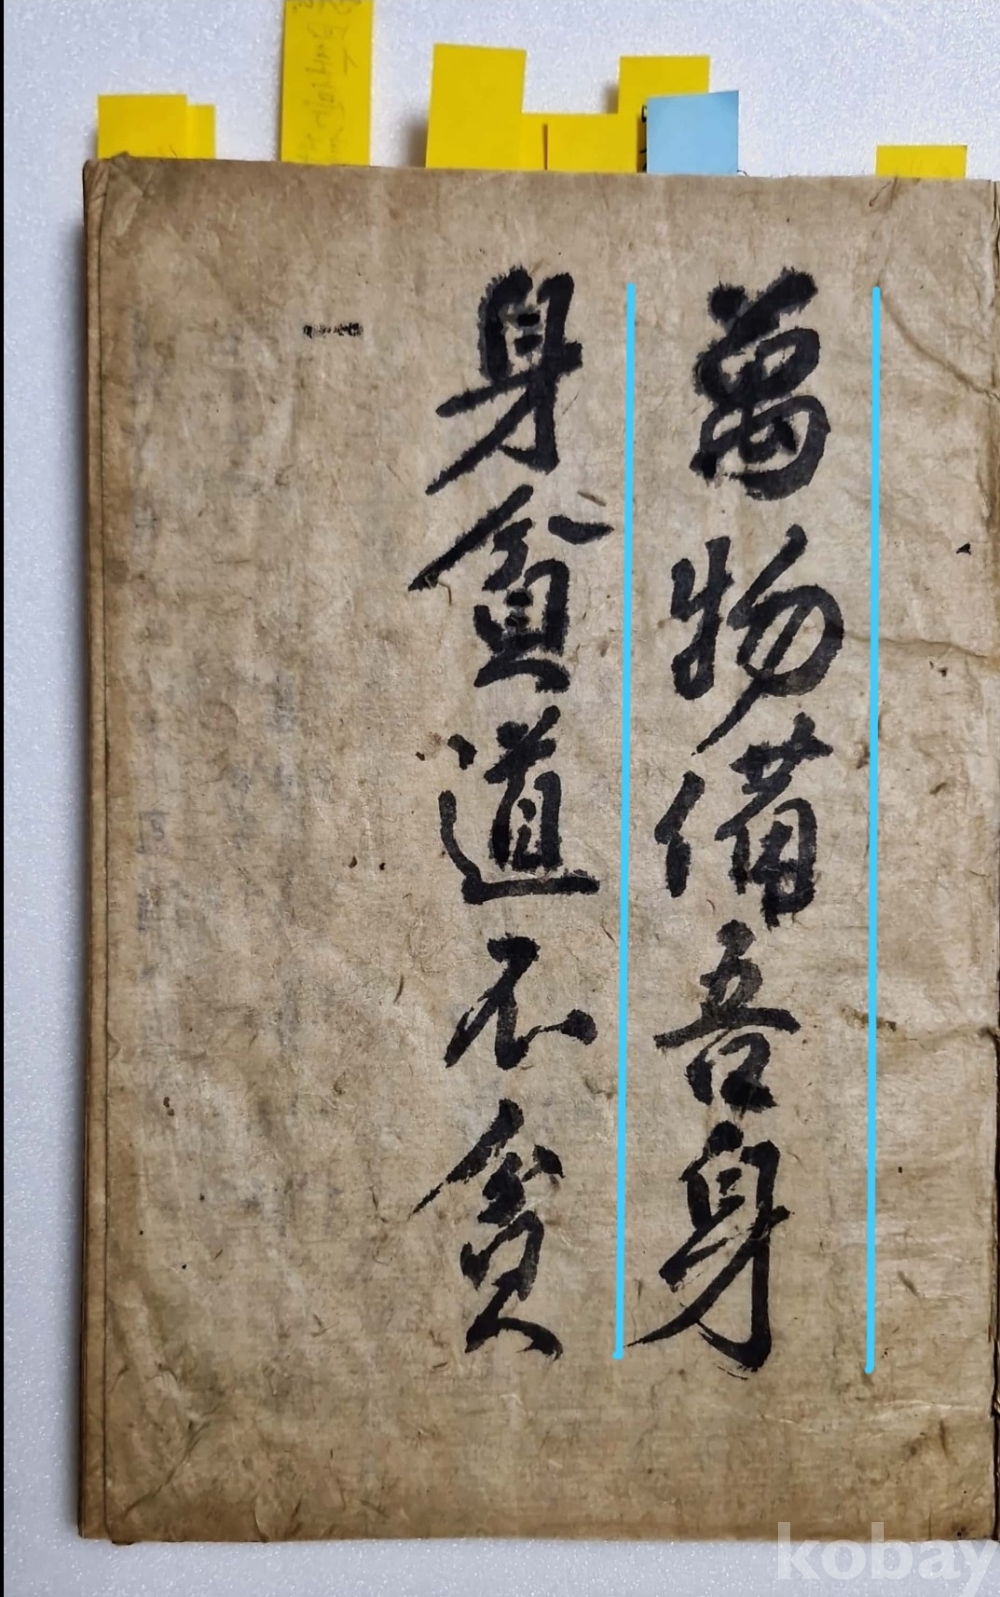 萬物備吾身
身貧道不貧
kobay